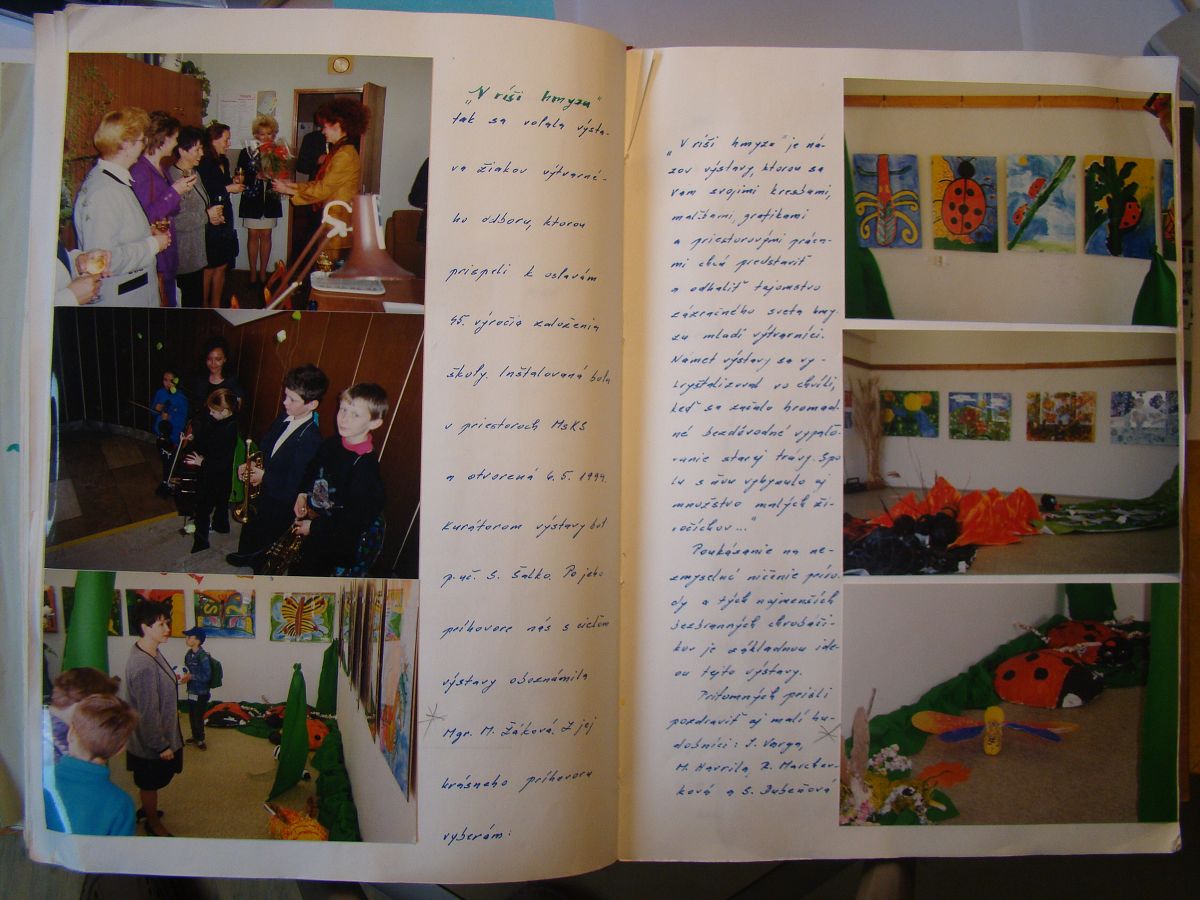 „V ríši hmyzu"
tak sa volala výsta-
va žiakov výtvarné-
ho odboru, ktorou
prispeli k oslavám
45. výročia založenia
školy. Inštalovaná bola
v priestoroch MsKS
a otvorená 6.5. 1994.
Kurátorom výstavy bol
p. uč. S. Šalko. Po jeho
príhovore nás s cieľom
výstavy oboznámila
Mgr. M. Žáková. Z jej
krásneho príhovoru
vyberám:
„V ríši hmyzu" je ná-
zov výstavy, ktorou sa
vám svojimi kresbami,
maľbami, grafikami
a priestorovými prácA-
mi chcú predstaviť
a odhaliť tajomstvo
zázračného sveta hmy-
zu mladí výtvarníci.
Námet výstavy sa vy-
kryštalizoval vo chvíli,
keď sa začalo hromad-
né bezdôvodné vypaľo-
vanie starej trávy. Spo-
lu s ňou vyhynulo aj
množstvo malých ži-
vočíchov..."
Poukázanie na ne-
zmyselné ničenie príro-
dy a tých najmenších
bezbranných chrobáči-
kov je základnou ide-
ou tejto výstavy.
Prítomných prišli
pozdraviť aj malí hu-
dobníci: J. Varga,
M. Havrila, Z. Marchev-
ková a S. Dubeňová